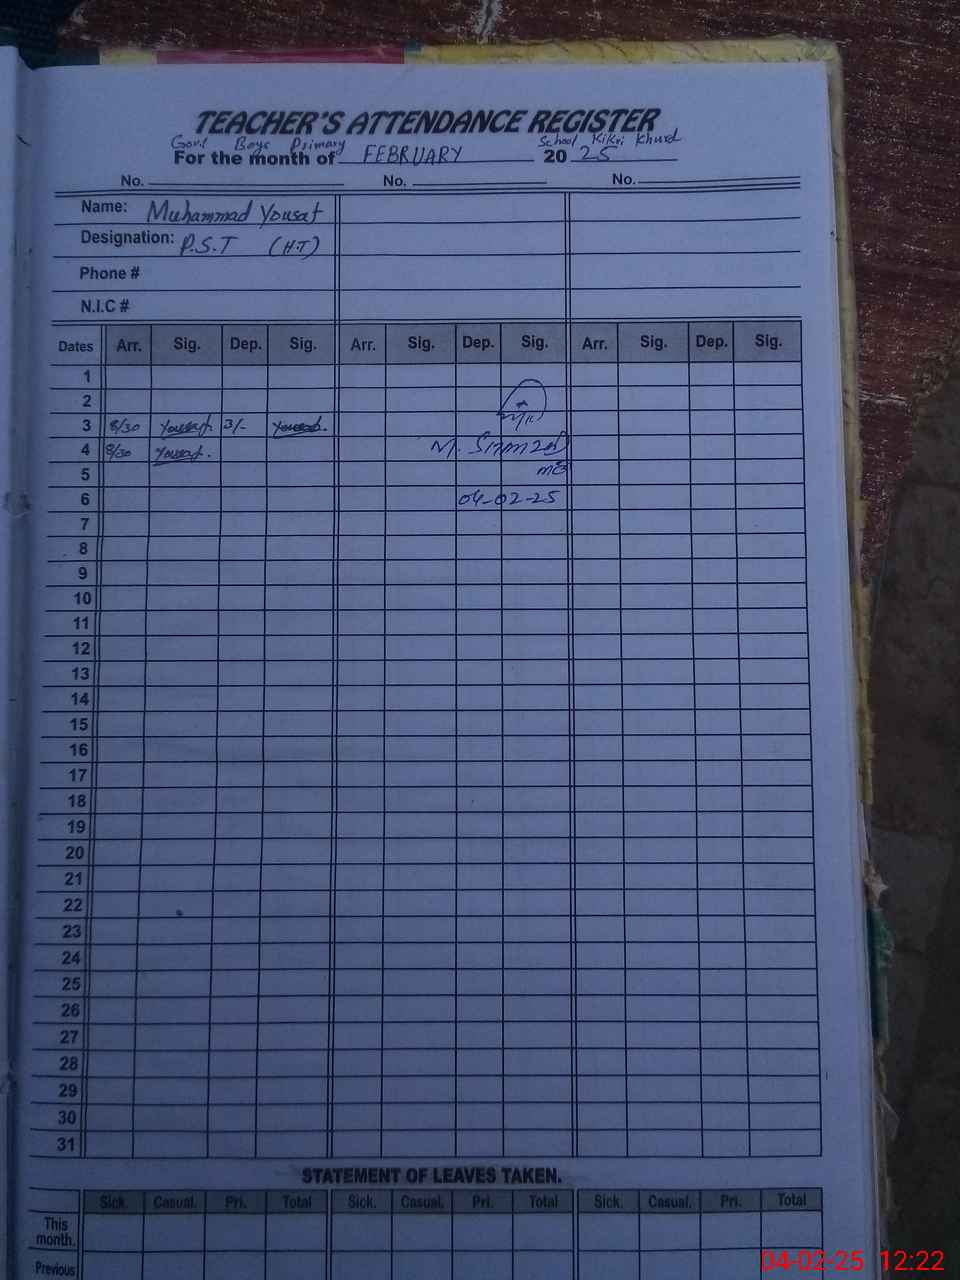 TEACHER'S ATTENDANCE REGISTER
Govt Boys Primary School Kikri Khurd
For the month of FEBRUARY 20 25
No. No. No.
Name: Muhammad Yousaf
Designation: P.S.T (H.T)
Phone #
N.I.C #
Dates Arr. Sig. Dep. Sig. Arr. Sig. Dep. Sig. Arr. Sig. Dep. Sig.
1
2
3 8/30 Yousaf 3/- Yousaf.
4 8/30 Yousaf.
5
6 04-02-25
7
8
9
10
11
12
13
14
15
16
17
18
19
20
21
22
23
24
25
26
27
28
29
30
31
STATEMENT OF LEAVES TAKEN.
Sick. Casual. Pri. Total Sick. Casual. Pri. Total Sick. Casual. Pri. Total
This
month.
Previous
04-02-25 12:22